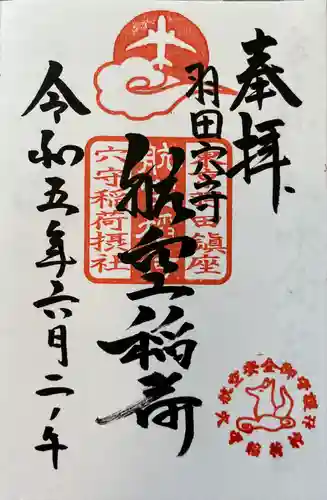 奉拝
羽田穴守
航空稲荷
令和五年六月二ノ午
東京羽田鎮座
航空稲荷
穴守稲荷摂社